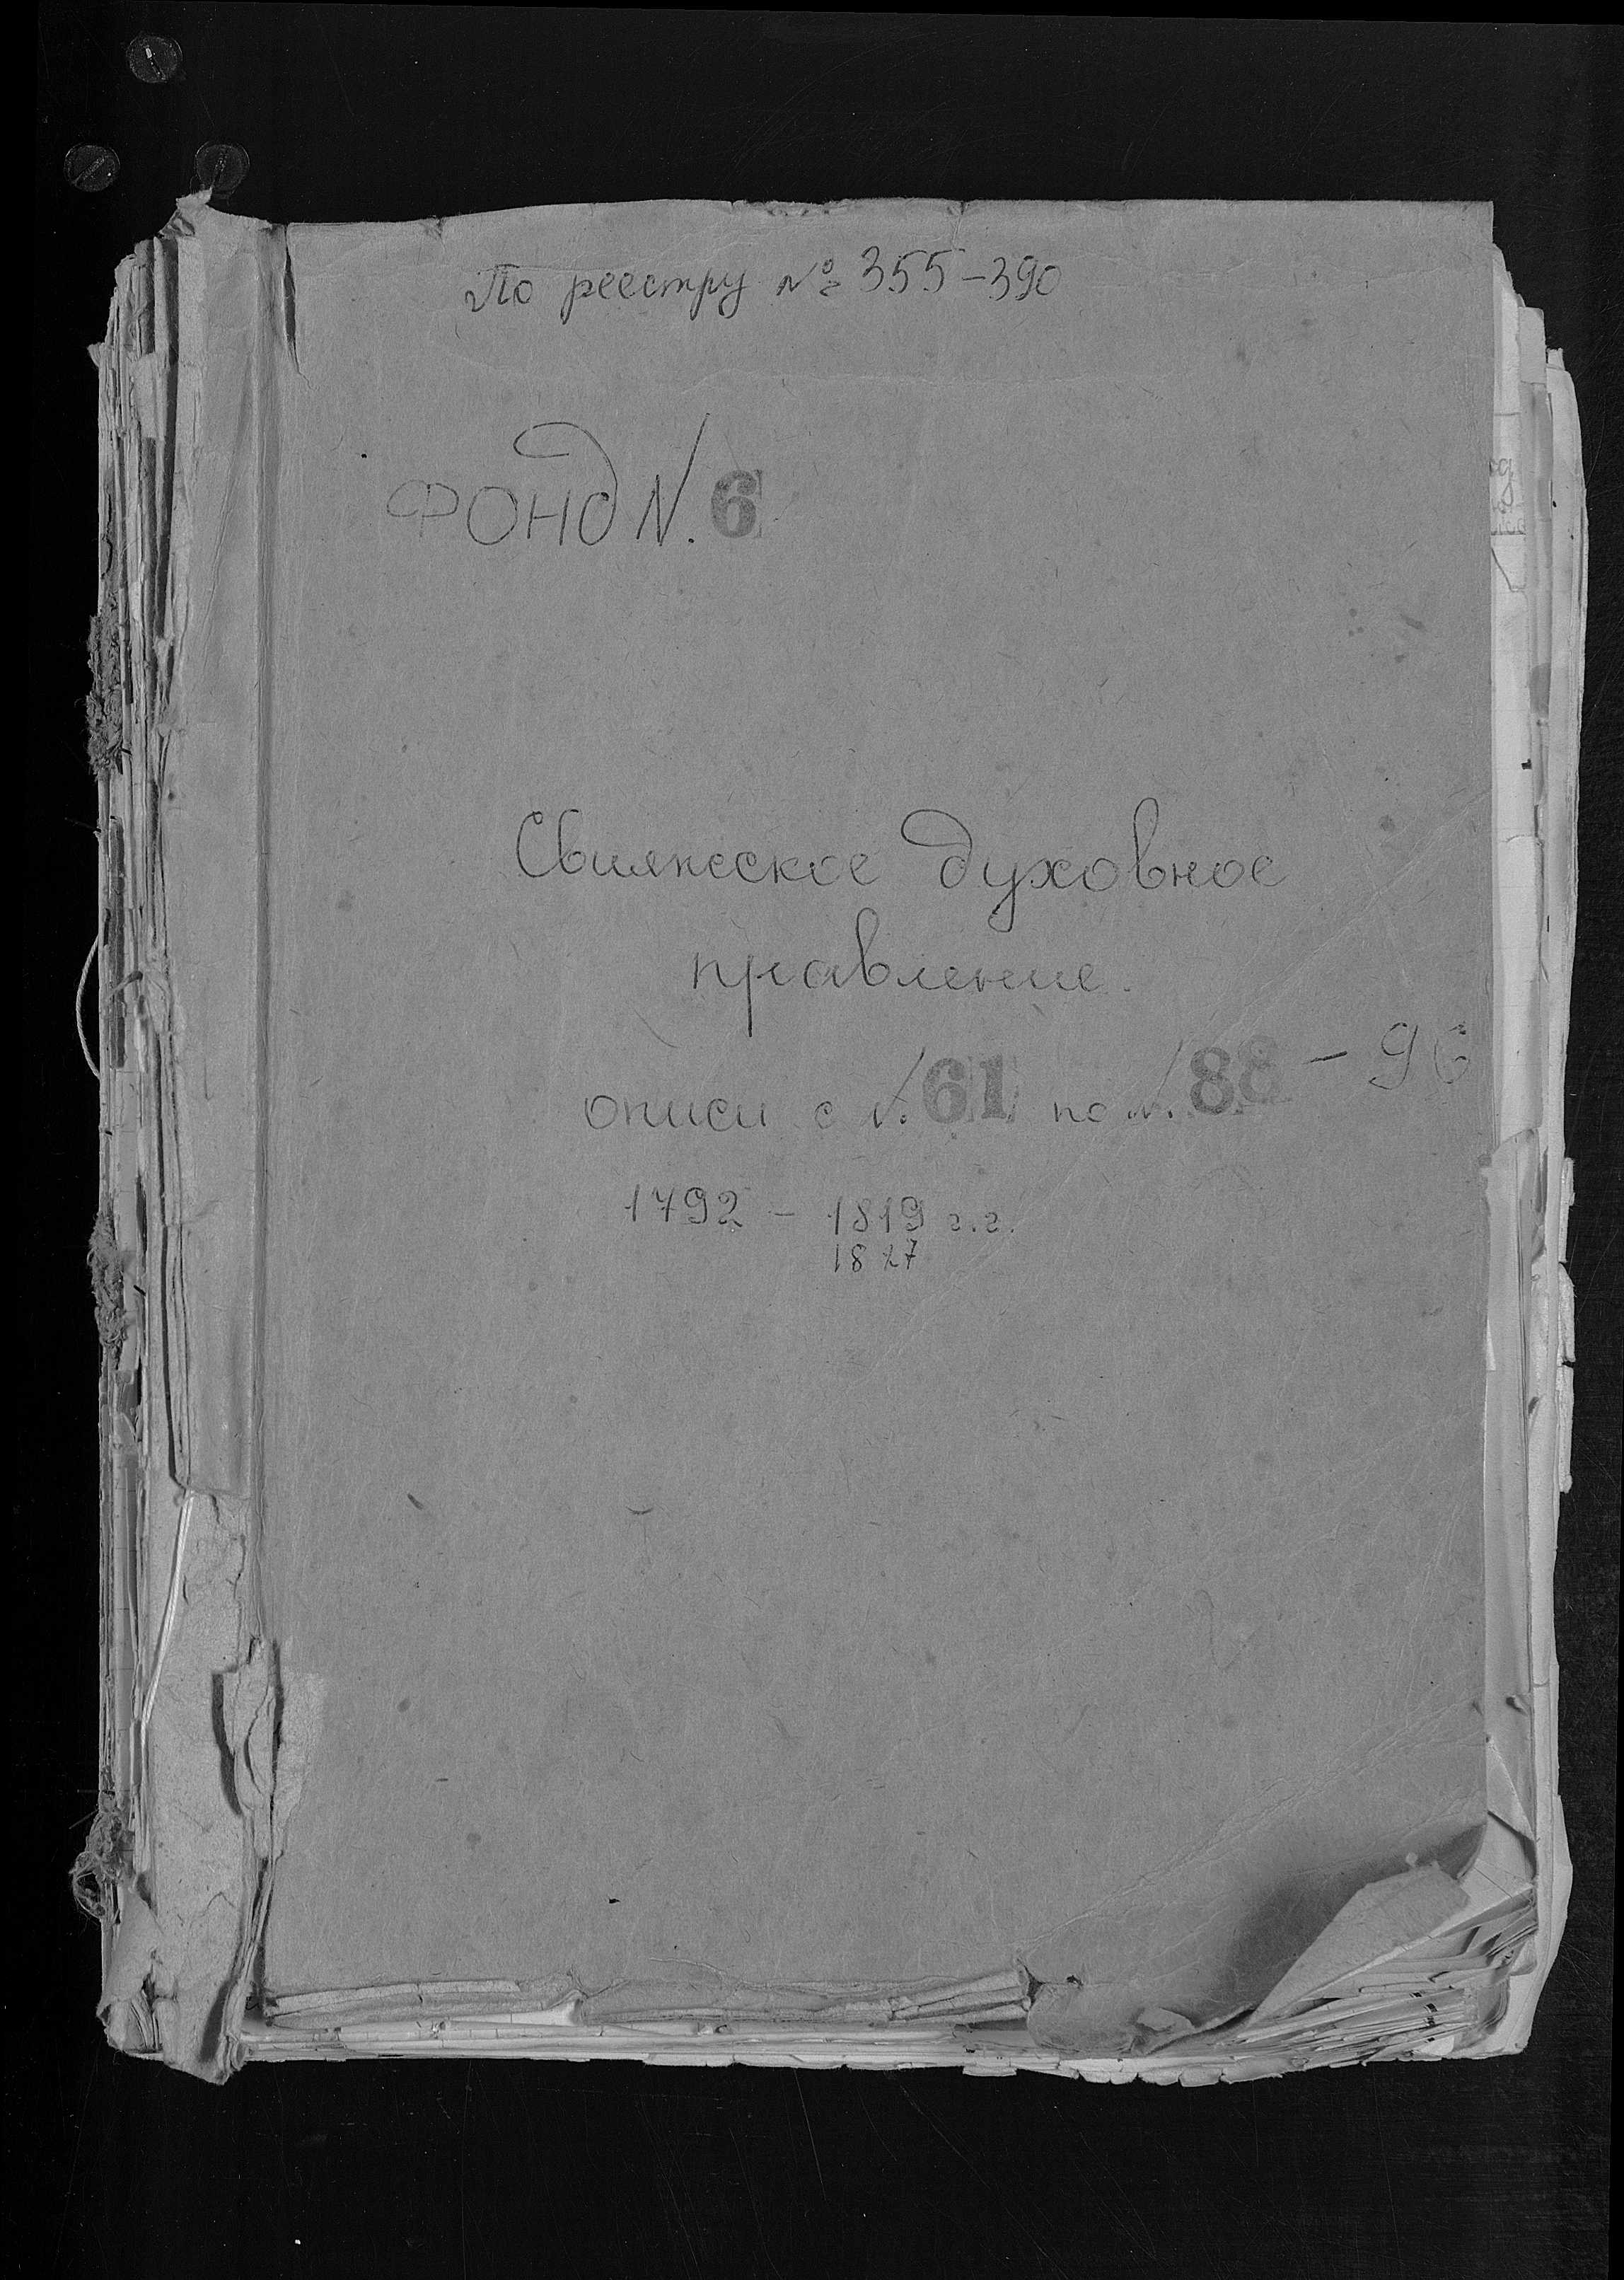 По реестру № 355-390
ФОНД N. 6
Свияжское духовное
правление.
описи с N. 61 по N. 88 - 96
1792 - 1819 г.г.
1827